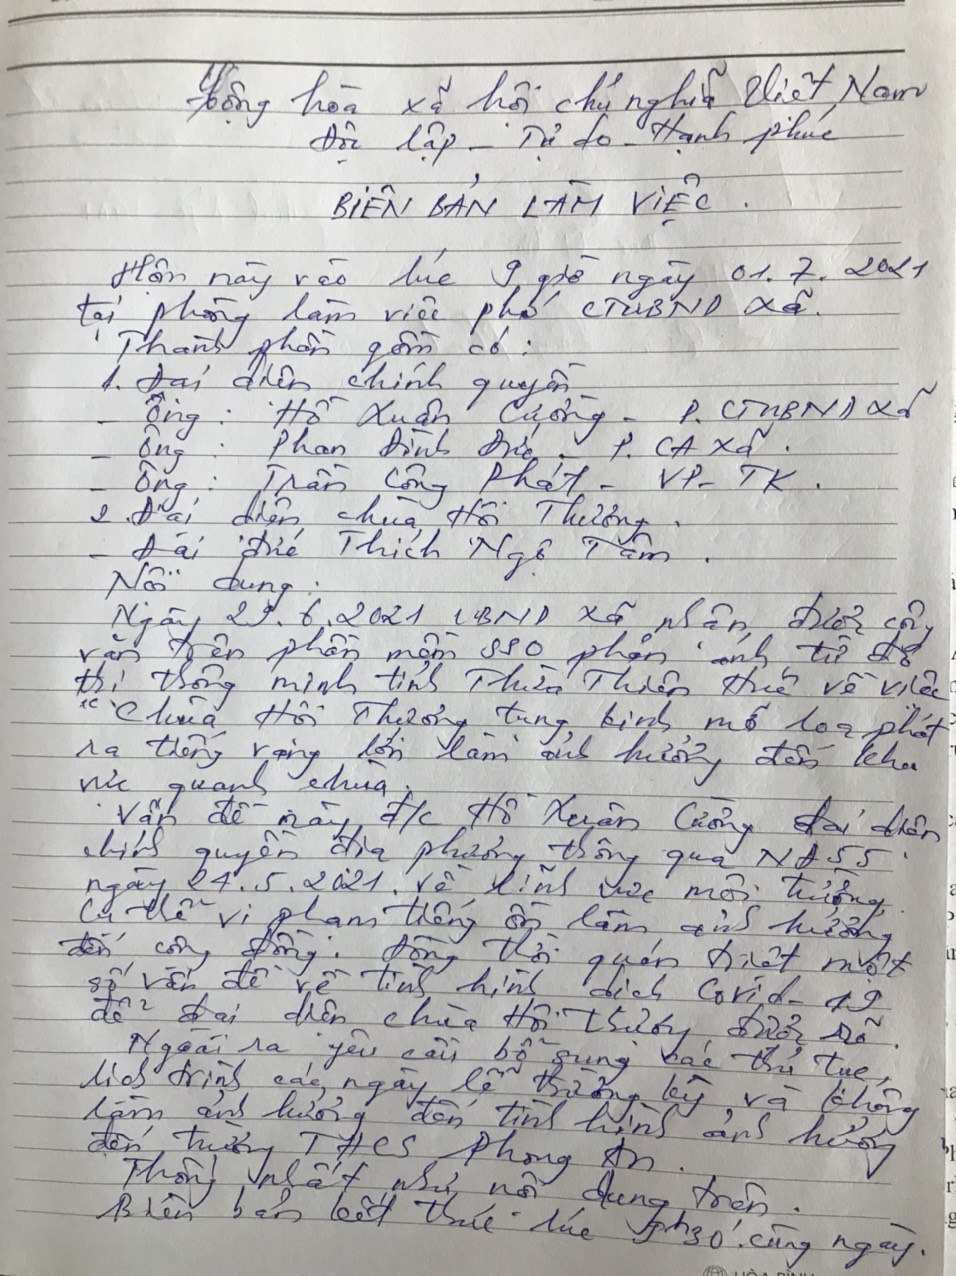 Cộng hòa xã hội chủ nghĩa Việt Nam
Độc lập - Tự do - Hạnh phúc
BIÊN BẢN LÀM VIỆC.
Hôm nay vào lúc 9 giờ ngày 01.7.2021
tại phòng làm việc phó CTUBND xã.
Thành phần gồm có:
1. Đại diện chính quyền
- Ông: Hồ Xuân Cường - P. CTUBND xã
- Ông: Phan Đình Đức - P. CA xã.
- Ông: Trần Công Phát - VP-TK.
2. Đại diện chùa Hội Thượng.
- Đại đức Thích Ngộ Tâm.
Nội dung:
Ngày 29.6.2021 UBND xã nhận được công
văn trên phần mềm SSO phản ánh từ đô
thị thông minh tỉnh Thừa Thiên Huế về việc
"Chùa Hội Thượng tụng kinh mở loa phát
ra tiếng vang lớn làm ảnh hưởng đến khu
vực quanh chùa.
Vấn đề này đ/c Hồ Xuân Cường đại diện
chính quyền địa phương thông qua NĐ55.
ngày 24.5.2021. về lĩnh vực môi trường
cụ thể vi phạm tiếng ồn làm ảnh hưởng
đến cộng đồng. Đồng thời quán triệt một
số vấn đề về tình hình dịch Covid-19
để đại diện chùa Hội Thượng được rõ.
Ngoài ra yêu cầu bổ sung các thủ tục,
lịch trình các ngày lễ thường kỳ và không
làm ảnh hưởng đến tình hình ảnh hưởng
đến trường THCS Phong An.
Thống nhất như nội dung trên.
Biên bản kết thúc lúc 9h30' cùng ngày.
HÒA BÌNH